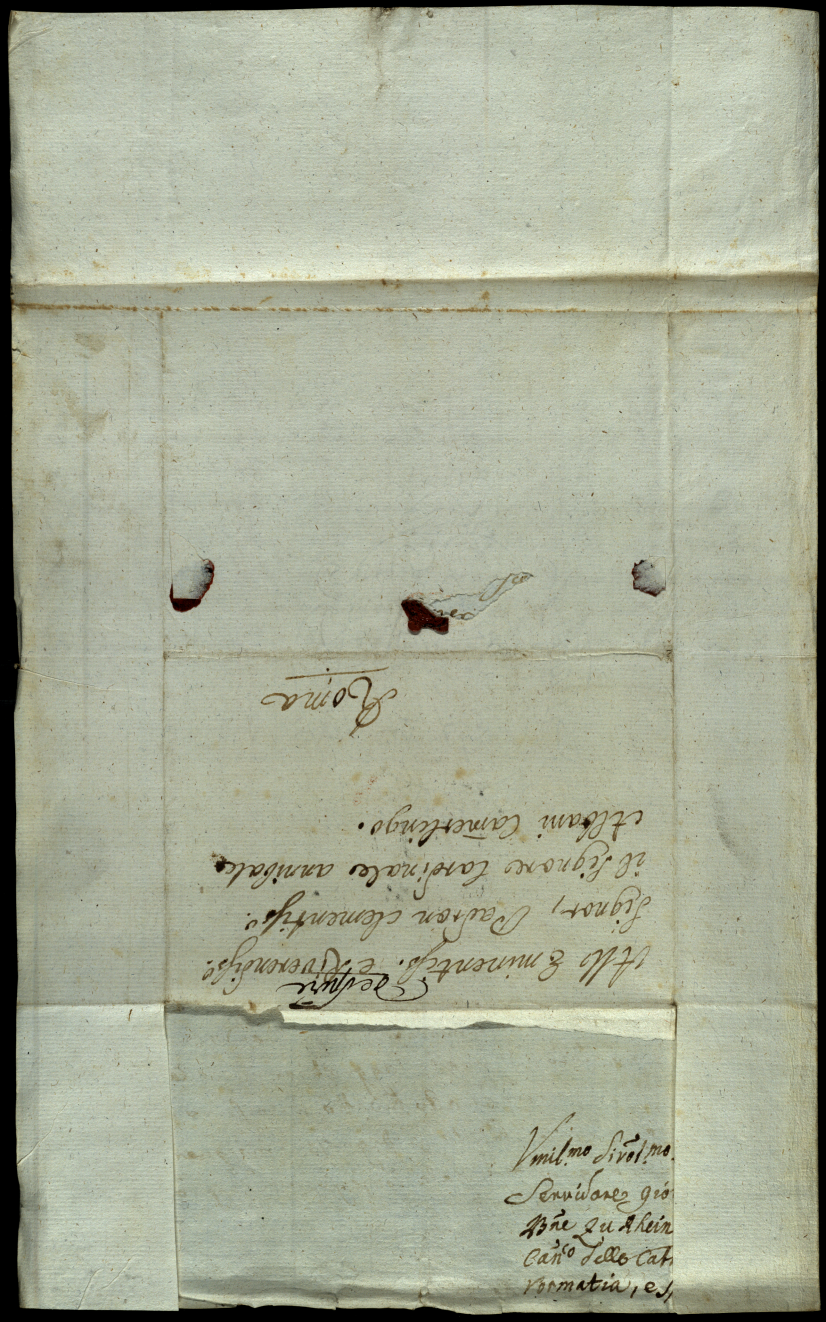 All Eminentiss. e Riverendiss.º
Signor, Padron clementiss.º
il Signore Cardinale annibale
Albani Camerlingo.
Roma
Vmil.mo Divot.mo
Servidore gio
Bne qu Rhein
Canco dello Cat
Vormatia, e s